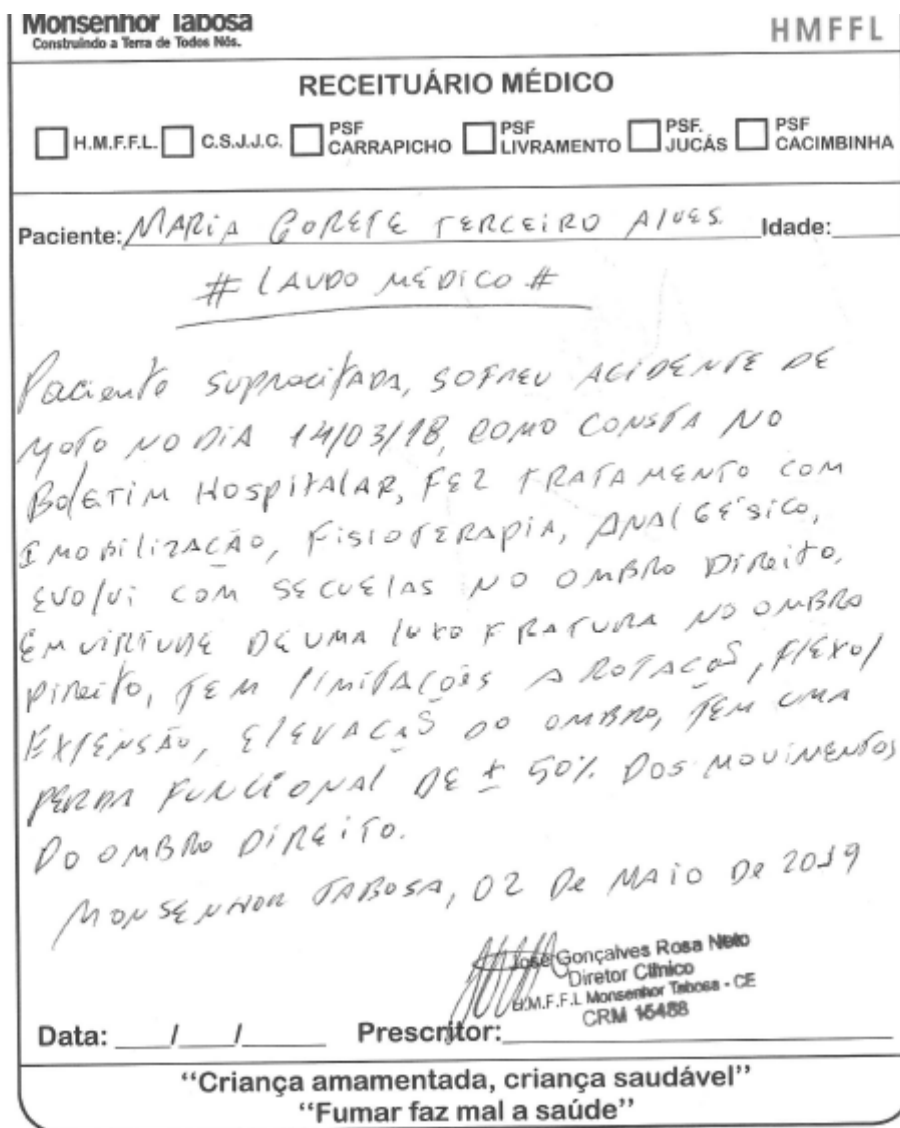 Monsenhor Tabosa
Construindo a Terra de Todos Nós.
HMFFL
RECEITUÁRIO MÉDICO
H.M.F.F.L. C.S.J.J.C. PSF CARRAPICHO PSF LIVRAMENTO PSF. JUCÁS PSF CACIMBINHA
Paciente: MARIA GORETE TERCEIRO ALVES Idade:
# LAUDO MÉDICO #
Paciente SUPRACITADA, SOFREU ACIDENTE DE
MOTO NO DIA 14/03/18, COMO CONSTA NO
BOLETIM HOSPITALAR, FEZ TRATAMENTO COM
IMOBILIZAÇÃO, FISIOTERAPIA, ANALGÉSICO,
EVOLVI COM SECUELAS NO OMBRO DIREITO,
EM VIRTUDE DE UMA LUXO FRATURA NO OMBRO
DIREITO, TEM LIMITAÇÕES A ROTAÇÃO, FLEXO/
EXTENSÃO, ELEVAÇÃO DO OMBRO, TEM UMA
PERDA FUNCIONAL DE ± 50% DOS MOVIMENTOS
DO OMBRO DIREITO.
MONSENHOR TABOSA, 02 DE MAIO DE 2019
José Gonçalves Rosa Neto
Diretor Clínico
H.M.F.F.L Monsenhor Tabosa - CE
CRM 15488
Data: ___/___/_____ Prescritor:
"Criança amamentada, criança saudável"
"Fumar faz mal a saúde"